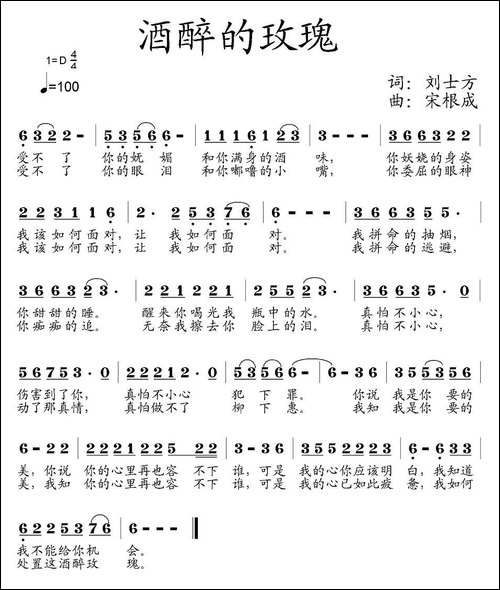 酒醉的玫瑰
1=D 4/4
♩=100
词：刘士方
曲：宋根成
6 3 2 2 - | 5 3 5 6 6 - | 1 1 1 1 6 1 2 3 | 3 - - - | 3 6 6 3 2 2
受不了 你的妩媚 和你满身的酒 味，你妖娆的身姿
受不了 你的眼泪 和你嘟噜的小 嘴，你委屈的眼神
2 2 3 1 1 6 | 2 · 2 2 5 3 7 6 | 6 - - - | 3 6 6 3 5 ·
我该如何面对，让 我如何面 对。 我拼命的抽烟，
我该如何面对，让 我如何面 对。 我拼命的逃避，
3 6 6 3 2 3 · | 2 2 1 2 2 1 | 2 2 2 1 2 · | 3 6 6 3 5 · 0
你甜甜的睡。 醒来你喝光我 瓶中的水。 真怕不小心，
你痴痴的追。 无奈我擦去你 脸上的泪。 真怕不小心，
5 6 7 5 3 · 0 | 2 2 2 1 2 · 0 | 5 3 5 6 6 - | 6 - 3 6 | 3 5 5 3 5 6
伤害到了你， 真怕不小心 犯下罪。 你说 我是你 要的
动了那真情， 真怕做不了 柳下惠。 我知 我是你 要的
6 - 2 2 | 2 2 2 1 2 2 5 2 2 | 3 - 3 6 | 3 5 5 5 2 2 3 5 | 6 - 6 3 3
美，你说 你的心里再也容 不下 谁，可是 我的心你应该明 白，我知道
美，我知 你的心里再也容 不下 谁，可是 我的心已如此疲 惫，我如何
6 2 2 5 3 7 6 | 6 - - - ‖
我不能给你机 会。
处置这酒醉玫 瑰。